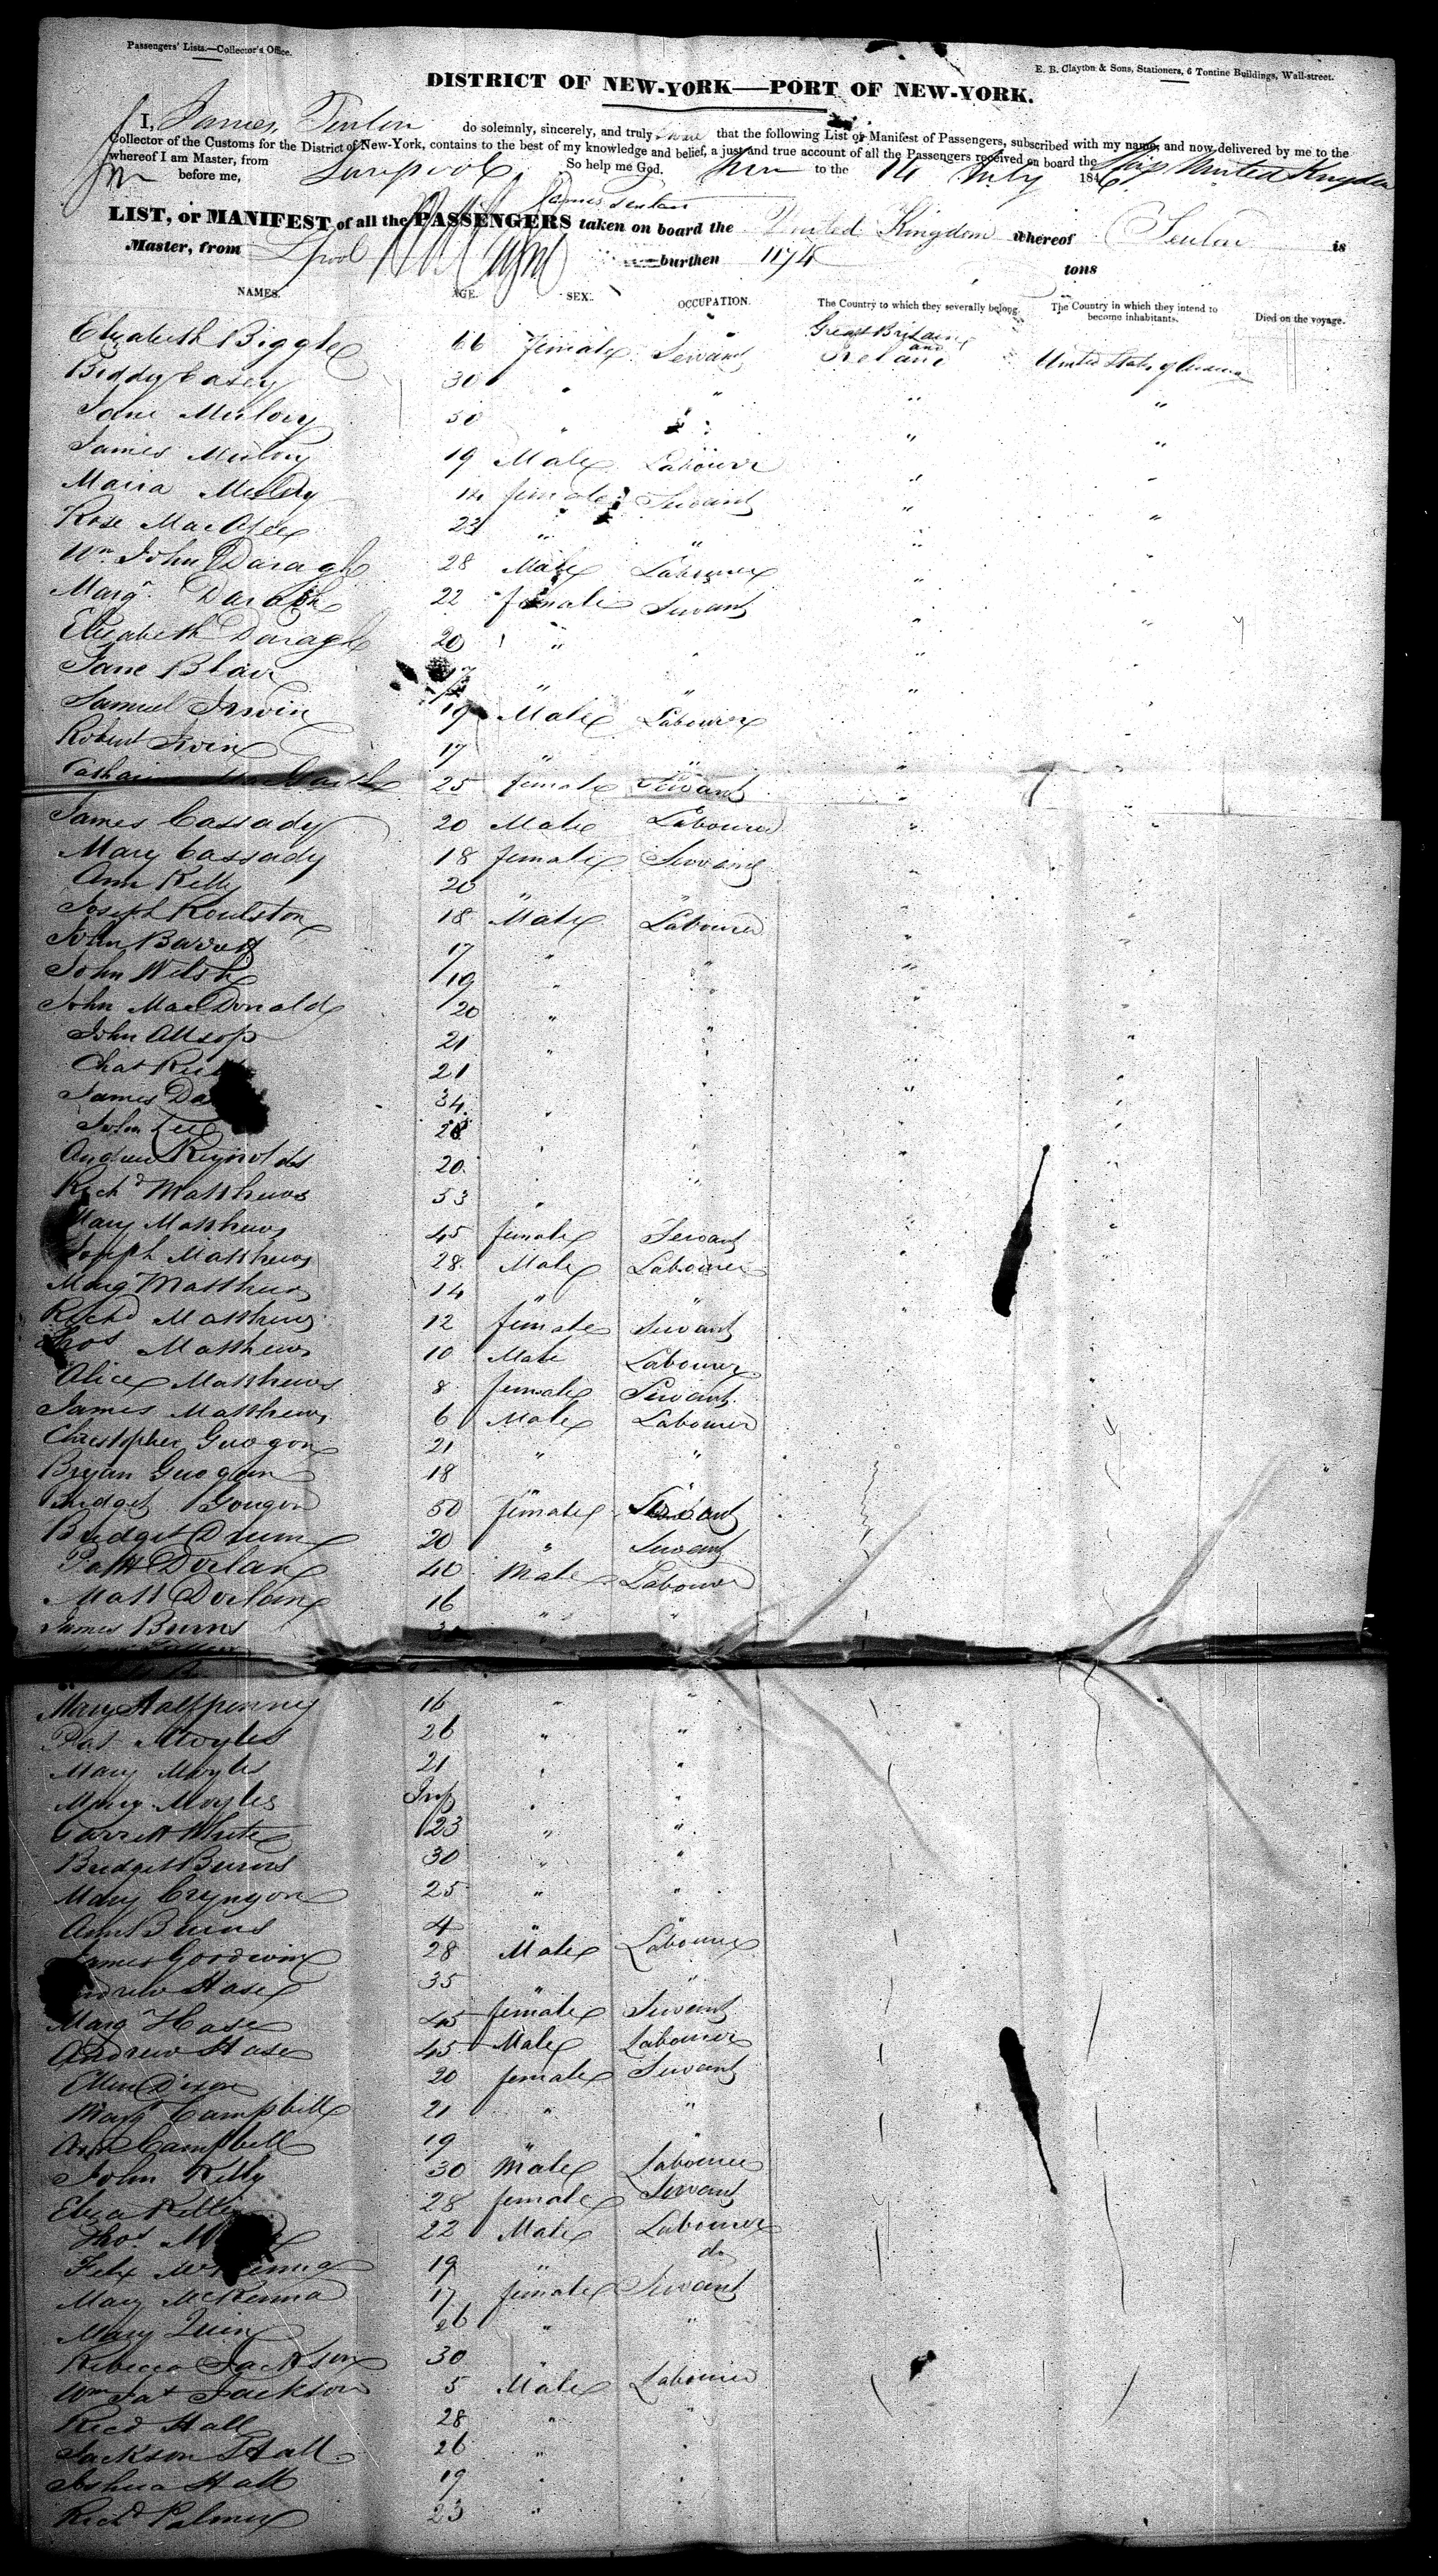 Passengers' Lists.—Collector's Office.
E. B. Clayton & Sons, Stationers, 6 Tontine Buildings, Wall-street.
DISTRICT OF NEW-YORK—PORT OF NEW-YORK.
I, James Fenton do solemnly, sincerely, and truly swear that the following List or Manifest of Passengers, subscribed with my name, and now delivered by me to the
Collector of the Customs for the District of New-York, contains to the best of my knowledge and belief, a just and true account of all the Passengers received on board the Ship United Kingdom
whereof I am Master, from Liverpool So help me God. to the 14 July 184
before me,
James Fenton
LIST, or MANIFEST of all the PASSENGERS taken on board the United Kingdom whereof Fenton is
Master, from Lpool burthen 1174 tons
NAMES. AGE. SEX. OCCUPATION. The Country to which they severally belong. The Country in which they intend to become inhabitants. Died on the voyage.
Elizabeth Biggle 66 female Servant Great Britain and Ireland United States of America
Biddy Casey 30 " " " "
Jane Mulovy 50 " " " "
James Mulovy 19 Male Labourer " "
Maria 14 female Servant " "
Rose MacAfee 23 " " " "
Wm. John Daragh 28 Male Labourer " "
Margt. Daragh 22 female Servant " "
Elizabeth Daragh 20 " " " "
Jane Blair 17 " " " "
Samuel Irwin 19 Male Labourer " "
Robert Irwin 17 " " " "
25 female Servant " "
James Cassady 20 Male Labourer " "
Mary Cassady 18 female Servant " "
Ann Kelly 20 " " " "
Joseph Roulston 18 Male Labourer " "
John Barrett 17 " " " "
John Welsh 19 " " " "
John MacDonald 20 " " " "
John Allsop 21 " " " "
Chas 21 " " " "
James 34 " " " "
John Lee " " " "
Andrew Reynolds 20 " " " "
Richd Matthews 53 " " " "
Mary Matthews 45 female Servant " "
Joseph Matthews 28 Male Labourer " "
Margt Matthews 14 " " " "
Richd Matthews 12 female Servant "
Thos Matthews 10 Male Labourer "
Alice Matthews 8 female Servant "
James Matthews 6 Male Labourer
Christopher Guogon 21 " "
Bryan Guogan 18 " "
Bridget Gougon 50 female Servant
Bridget Drum 20 " Servant
Patt Dorlan 40 Male Labourer
Matt Dorlan 16 " "
James Burns
Mary Halfpenny 16 " "
Pat Moyles 26 " "
Mary Moyles 21 " "
Mary Moyles Inf " "
Garrett White 23 " "
Bridget Burns 30 " "
Mary Cryngon 25 " "
Ann Burns 4 " "
James Goodwin 28 Male Labourer
Andrew Hase 35 " "
Margt Hase 45 female Servant
Andrew Hase 45 Male Labourer
Ellen Dixon 20 female Servant
Margt Campbell 21 " "
Ann Campbell 19 " "
John Kelly 30 Male Labourer
Eliza Kelly 28 female Servant
Thos. 22 Male Labourer
Felix McKenna 19 " do
Mary McKenna 17 female Servant
Mary Quin 26 " "
Rebecca Jackson 30 "
Wm Jas Jackson 5 Male Labourer
Ricd Hall 28 " "
Jackson Hall 26 " "
Joshua Hall 19 " "
Richd Palmer 23 "